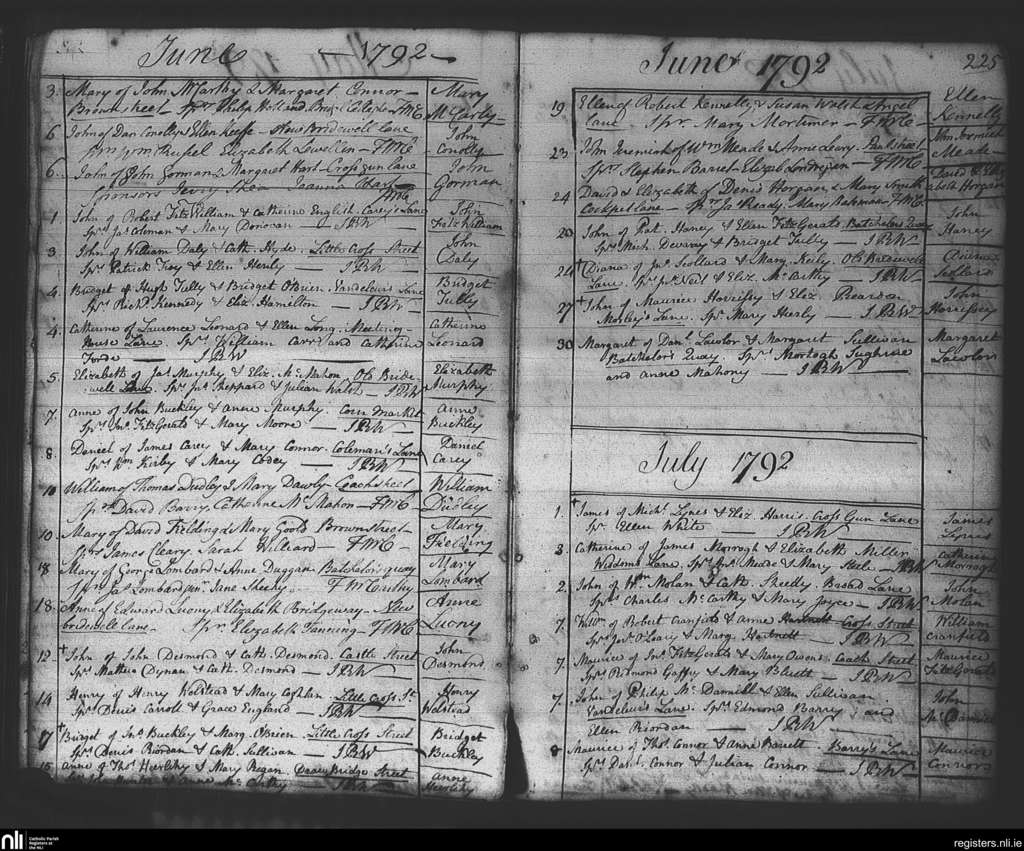 June — 1792 —
3. Mary of John McCarthy & Margaret Connor —
Brownstreet — Spr Philip Holland FMC
Mary
McCarty
6 John of Dan Conolly & Ellen Keeffe — New Bridewell Lane
Elizabeth Lewellen — FMC
John
Conolly
6. John of John Gorman & Margaret Hart — Cross gun lane
Sponsors Jerry Shea Joanna Hart
FMC
John
Gorman
1 John of Robert FitzWilliam & Catherine English. Carey's Lane
Sprs Jas Coleman & Mary Donovan — JBW
John
FitzWilliam
3. John of William Daly & Cath. Hyde. Little Cross Street
Sprs Patrick Foy & Ellen Henly — JBW
John
Daly
4. Bridget of Hugh Tully & Bridget OBrien. Vandeleurs Lane
Sprs Richd Kennedy & Eliz. Hamilton — JBW
Bridget
Tully
4. Catherine of Laurence Leonard & Ellen Long. Meeting
House Lane. Sprs William Carr and Catherine
Forde — JBW
Catherine
Leonard
5. Elizabeth of Jas Murphy & Eliz. McMahon. Old Bride
well Lane. Sprs Jas Sheppard & Julian Walsh — JBW
Elizabeth
Murphy
7. Anne of John Buckley & Anne Murphy. Corn Market
Sprs Jno. FitzGerald & Mary Moore — JBW
Anne
Buckley
8 Daniel of James Carey & Mary Connor. Coleman's Lane
Sprs Wm Kirby & Mary Codey — JBW
Daniel
Carey
10 William of Thomas Dudley & Mary Dawly — Coachstreet
Sprs David Barry, Catherine McMahon — FMC —
William
Dudley
10. Mary of David Fielding & Mary Goold Brownstreet —
Sprs James Cleary. Sarah Williard — FMC —
Mary
Fielding
18 Mary of George Lombard & Anne Duggan Batchelor's quay
Sprs Jas Lombard junr. Jane Sheehy — FMCarthy
Mary
Lombard
18. Anne of Edward Luony & Elizabeth Bridgeway — New
bridewell lane — Spr. Elizabeth Fanning — FMC
Anne
Luony
12 + John of John Desmond & Cath. Desmond. Castle Street
Sprs Mathew Dynan & Cath. Desmond — JBW
John
Desmond
14 Henry of Henry Wolstead & Mary Coghlan. Little Cross St
Sprs Denis Carroll & Grace England — JBW
Henry
Wolstead
17 + Bridget of Jno. Buckley & Marg. OBrien. Little Cross Street
Sprs Denis Riordan & Cath. Sullivan — JBW
Bridget
Buckley
15 Anne of Thos Hurlihy & Mary Regan. Bridge Street
McCarthy — JBW
Anne
Hurlihy
June 1792
225
19 Ellen of Robert Kennelly & Susan Walsh Angel
lane Spr. Mary Mortimer — FMC —
Ellen
Kennelly
23 John Jeremiah of Wm Meade & Anne Leary. Paulstreet
Sprs Stephen Barret — FMC
John Jermiah
Meade
24 David & Elizabeth of Denis Horgan & Mary Smith
Cockpit lane — Sprs Jas Ready, Mary FMC
David & Eliz
abeth Horgan
20 John of Pat. Haney & Ellen FitzGerald. Batchelors Quay
Sprs Mich. Devany & Bridget Tully — JBW
John
Haney
24 + Diana of Jas Scollard & Mary Keily. Old Bridewell
Lane. Sprs Neil & Eliz. McCarthy — JBW
Diana
Scollard
27 + John of Maurice Horrissey & Eliz. Pearson
Morley's Lane. Spr Mary Herly — JBW
John
Horrissey
30 Margaret of Danl Lawlor & Margaret Sullivan
Batchelor's Quay. Sprs Mortogh Sughrue
and Anne Mahony — JBW
Margaret
Lawlor
July 1792
1. + James of Michl Lynes & Eliz. Harris. Cross Gun Lane
Spr. Ellen White — JBW
James
Lynes
3. Catherine of James Morrogh & Elizabeth Miller
Widdows Lane. Sprs Meade & Mary Steele — JBW
Catherine
Morrogh
2. John of Wm Molan & Cath. Sheelly. Broad Lane
Sprs Charles McCarthy & Mary Joyce — JBW
John
Molan
7. Willm of Robert Cranfield & Anne Hartnett Cross Street
Sprs Jas O'Leary & Marg. Hartnett JBW
William
Cranfield
7. Maurice of Jno. FitzGerald & Mary Owens. Coach Street
Sprs Redmond Gaffey & Mary Barett — JBW
Maurice
FitzGerald
7. John of Philip McDannill & Ellen Sullivan
Vandeleurs Lane. Sprs Edmond Barry and
Ellen Riordan — JBW
John
McDannill
8 Maurice of Thos. Connor & Anne Barrett Barry's Lane
Sprs Danl. Connor & Julian Connor — JBW
Maurice
Connors
nli
Catholic Parish
Registers at
the NLI
registers.nli.ie